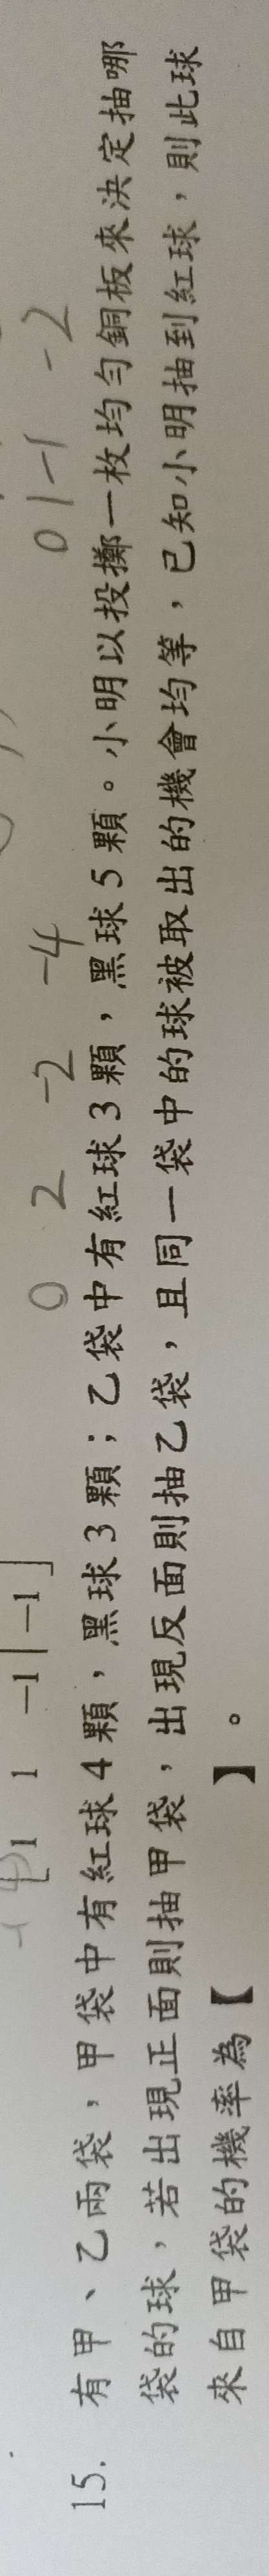 1 1 -1 | -1
0 2 -2 -4
0 1 -1 -2
15. 有甲、乙兩袋，甲袋中有紅球4顆，黑球3顆；乙袋中有紅球3顆，黑球5顆。小明以投擲一枚均勻銅板來決定抽哪
袋的球，若出現正面則抽甲袋，出現反面則抽乙袋，且同一袋中的球被取出的機會均等，已知小明抽到紅球，則此球
來自甲袋的機率為【　　　】。